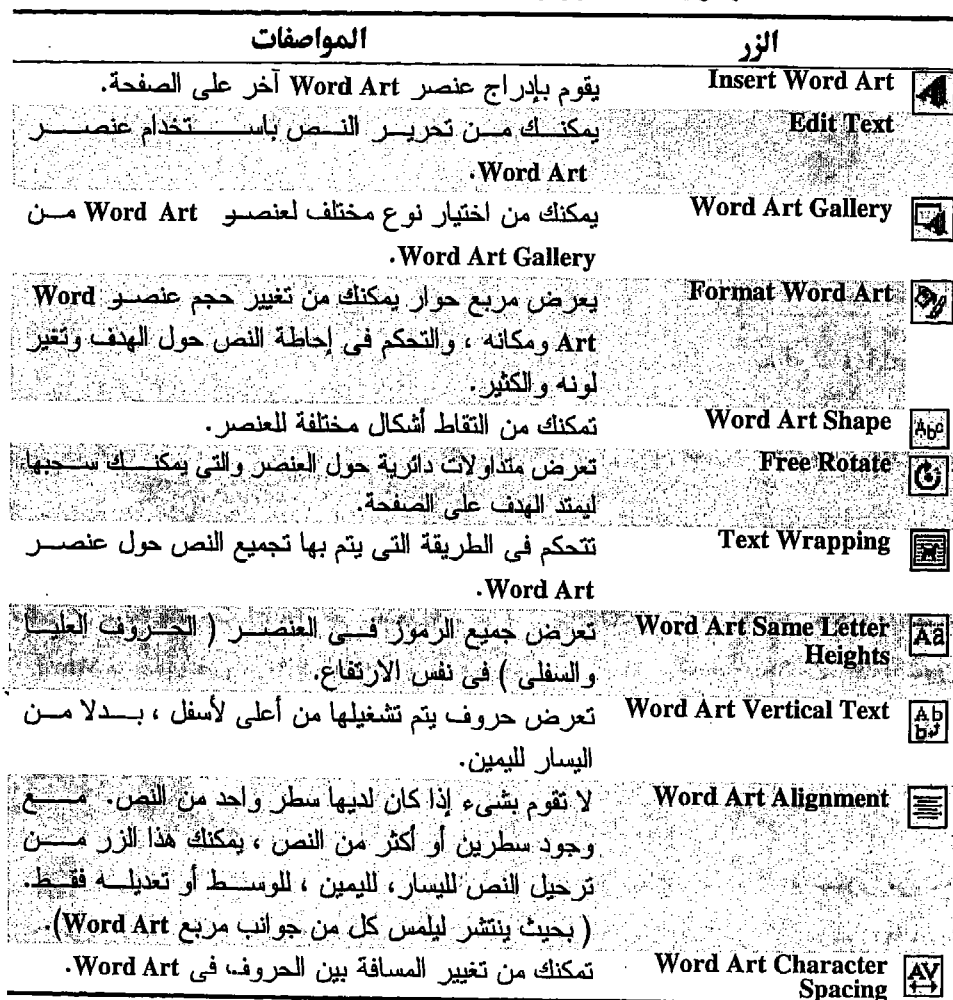 الزر المواصفات
Insert Word Art يقوم بإدراج عنصر Word Art آخر على الصفحة.
Edit Text يمكنك من تحرير النص باستخدام عنصر
Word Art.
Word Art Gallery يمكنك من اختيار نوع مختلف لعنصر Word Art من
Word Art Gallery.
Format Word Art يعرض مربع حوار يمكنك من تغيير حجم عنصر Word
Art ومكانه ، والتحكم فى إحاطة النص حول الهدف وتغير
لونه والكثير.
Word Art Shape تمكنك من التقاط أشكال مختلفة للعنصر.
Free Rotate تعرض متداولات دائرية حول العنصر والتى يمكنك سحبها
ليمتد الهدف على الصفحة.
Text Wrapping تتحكم فى الطريقة التى يتم بها تجميع النص حول عنصر
Word Art.
Word Art Same Letter تعرض جميع الرموز فى العنصر ( الحروف العليا
Heights والسفلى ) فى نفس الارتفاع.
Word Art Vertical Text تعرض حروف يتم تشغيلها من أعلى لأسفل ، بدلا من
اليسار لليمين.
Word Art Alignment لا تقوم بشىء إذا كان لديها سطر واحد من النص. مع
وجود سطرين أو أكثر من النص ، يمكنك هذا الزر من
ترحيل النص لليسار، لليمين ، للوسط أو تعديله فقط.
( بحيث ينتشر ليلمس كل من جوانب مربع Word Art).
Word Art Character تمكنك من تغيير المسافة بين الحروف فى Word Art.
Spacing